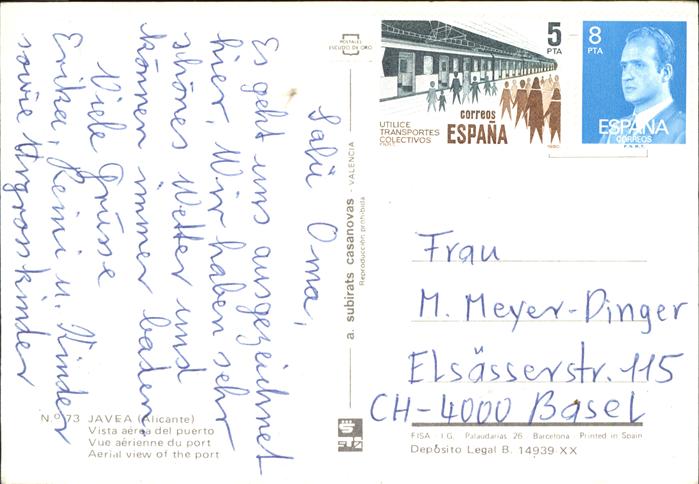 Salü Oma,
Es geht uns ausgezeichnet
hier. Wir haben sehr
schönes Wetter und
können immer baden
Viele Grüsse
Erika, Remi u. Kinder
sowie Urgrosskinder
N.º 73 JAVEA (Alicante)
Vista aérea del puerto
Vue aérienne du port
Aerial view of the port
POSTALES
ESCUDO DE ORO
a. subirats casanovas - VALENCIA
Reproducción prohibida
5
PTA
correos
ESPAÑA
UTILICE
TRANSPORTES
COLECTIVOS
1980
8
PTA
ESPAÑA
CORREOS
F.N.M.T.
Frau
M. Meyer-Dinger
Elsässerstr. 115
CH-4000 Basel
FISA - I.G. Palaudarias, 26 Barcelona Printed in Spain
Depósito Legal B. 14939-XX